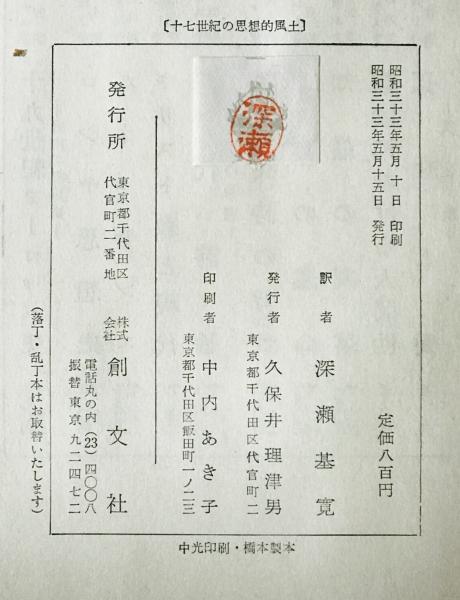 〔十七世紀の思想的風土〕
昭和三十三年五月十日 印刷
昭和三十三年五月十五日 発行
定価八百円
深瀬
訳者 深瀬基寛
発行者 久保井理津男
東京都千代田区代官町二
印刷者 中内あき子
東京都千代田区飯田町一ノ二三
発行所
東京都千代田区
代官町二番地
株式
会社
創文社
電話丸の内(23)四〇〇八
振替東京九二四七二
(落丁・乱丁本はお取替いたします)
中光印刷・橋本製本